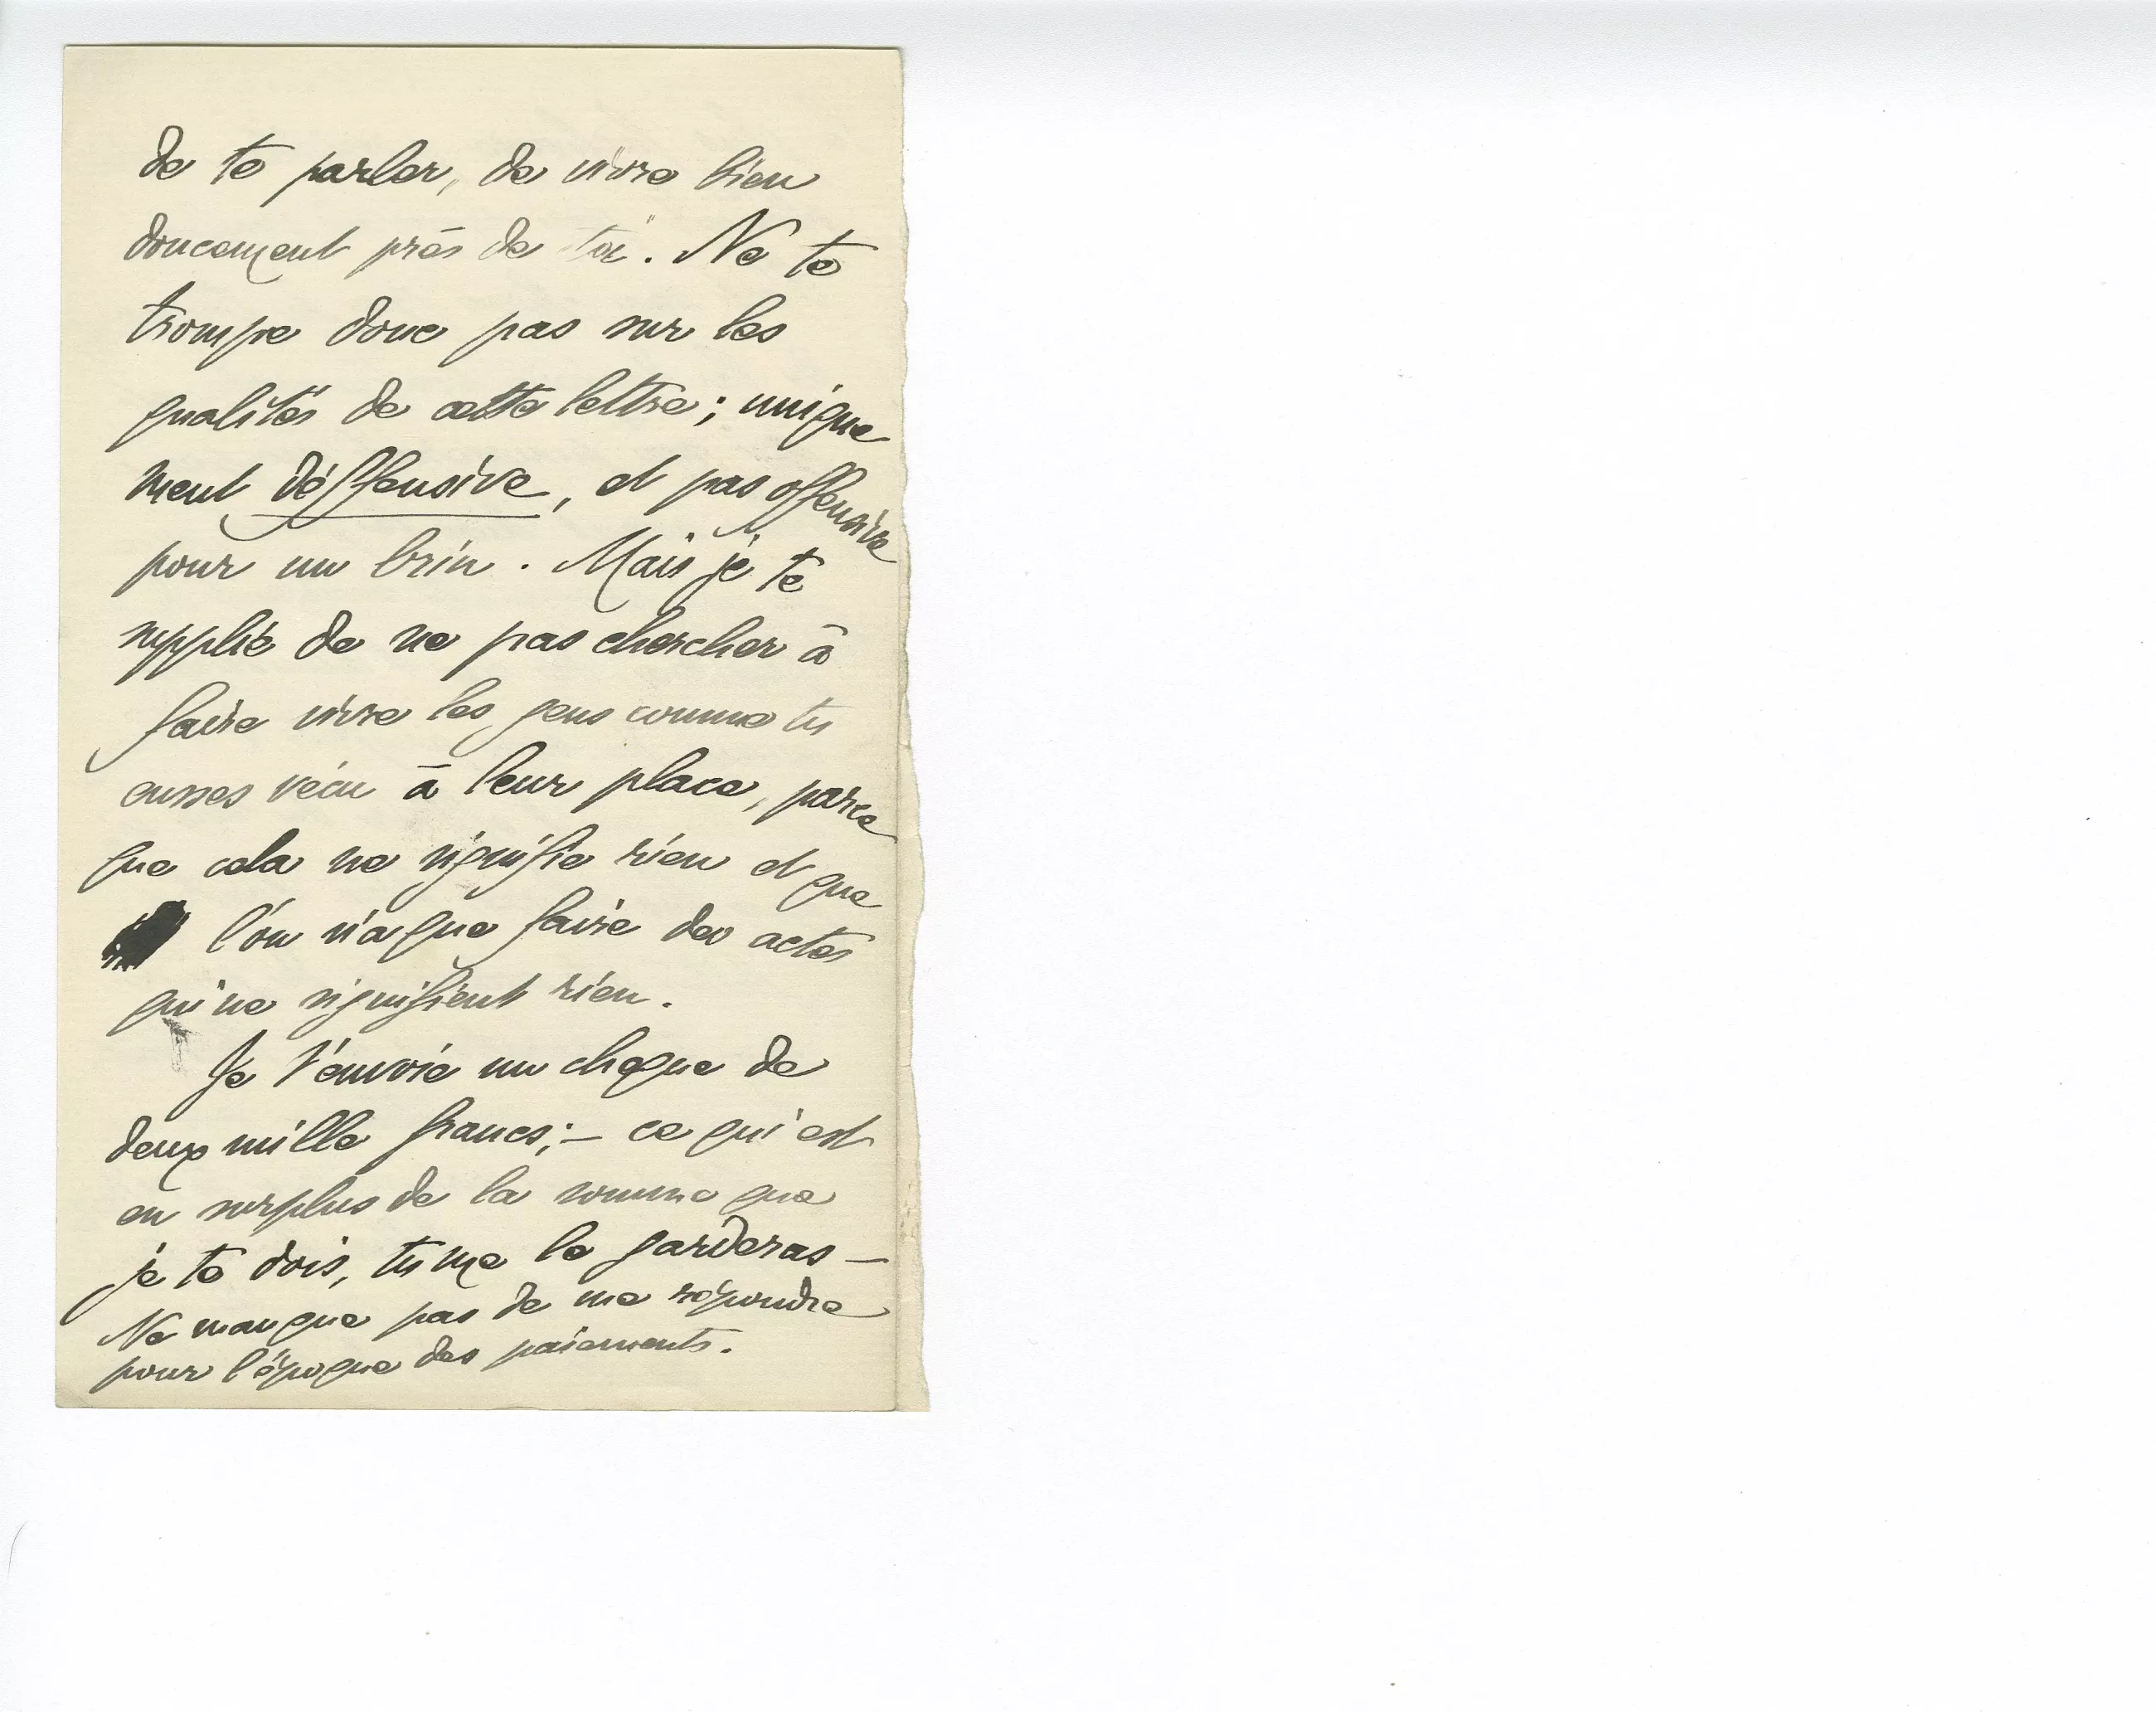 de te parler, de vivre bien
doucement près de toi. Ne te
trompe donc pas sur les
qualités de cette lettre ; unique
ment déffensive, et pas offensive
pour un brin. Mais je te
supplie de ne pas chercher à
faire vivre les gens comme tu
eusses vécu à leur place, parce
que cela ne signifie rien et que
l'on n'a que faire des actes
qui ne signifient rien.
Je t'envoie un cheque de
deux mille francs ; – ce qui est
en surplus de la somme que
je te dois, tu me le garderas –
Ne manque pas de me répondre
pour l'époque des paiements.